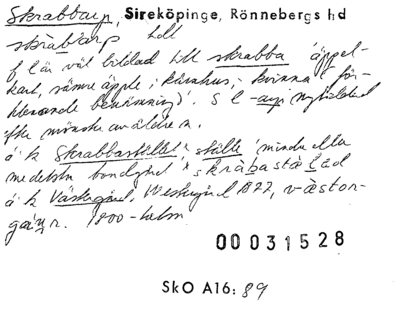 Skrabbarp, Sireköpinge, Rönnebergs hd
skràbarp
f l är väl bildad till skrabba 'äppel-
kart, sämre äpple; kärnhus; kvinna (för-
klenande benämning)'. S l -arp nybildad
efter mönster av äldre n.
å k Skrabbastället, ställe 'mindre eller
medelstor bondgård' skràbastäled
å k Västergård, Westergård 1877, væstor-
gåuɳ r. 1800-talm
00031528
SkO A16: 89